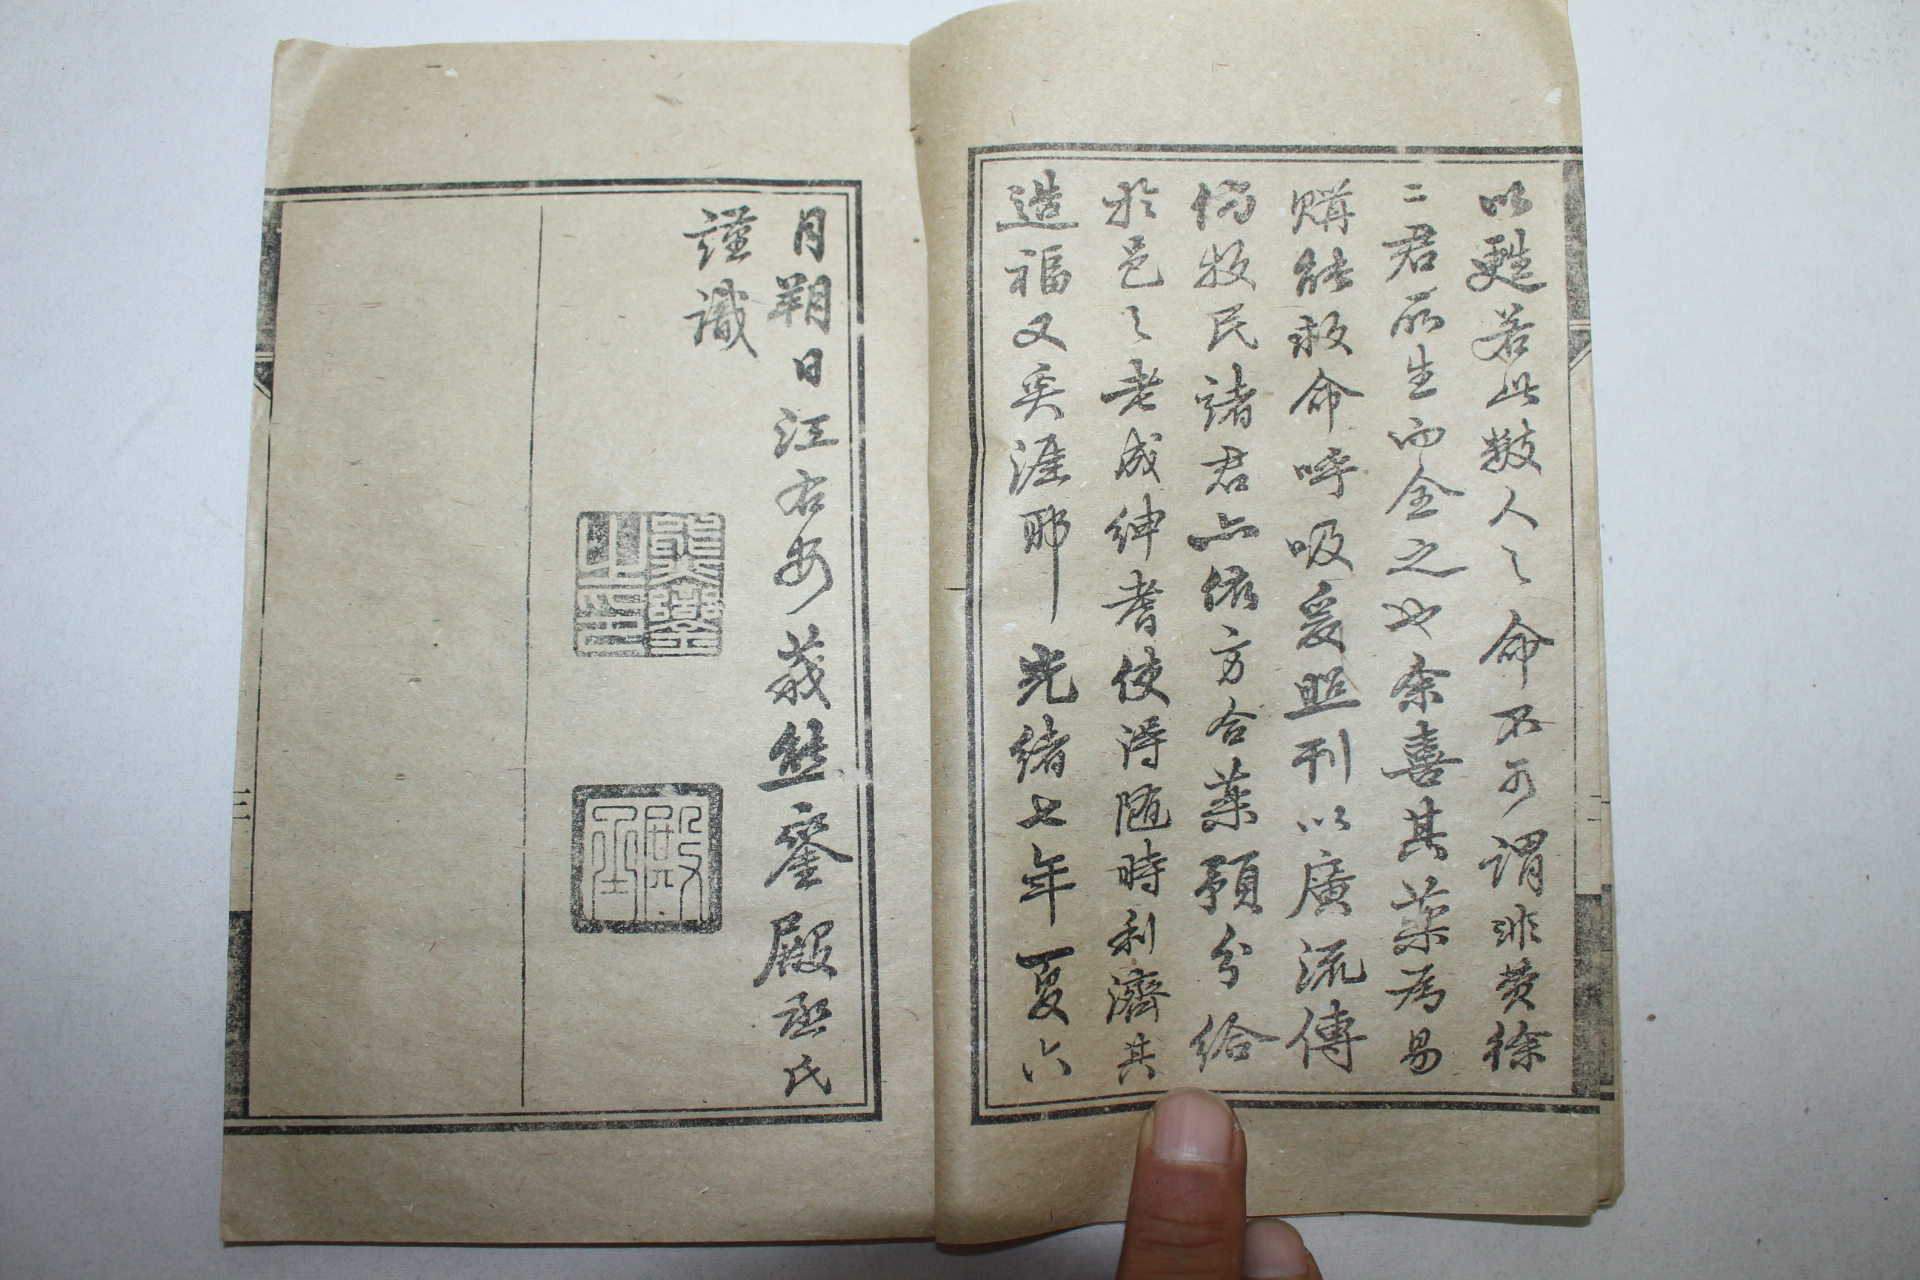 以甦若此數人々命不可謂非黄徐
二君所生而全之也余喜其藥為易
購能救命呼吸爰照刊以廣流傳
倘牧民諸君亦依方合藥預分給
於邑々老成紳耆使得隨時利濟其
造福又奚涯耶 光緒七年夏六
月朔日江右安義熊鑾殿丞氏
謹識
熊鑾之印
殿丞
三